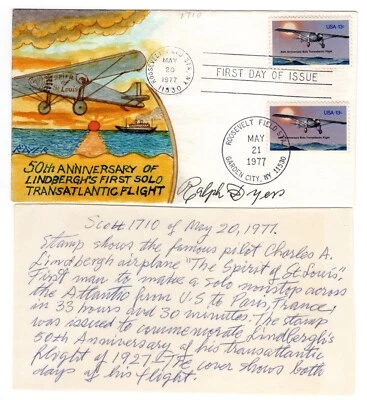 1710
USA 13c
50th Anniversary Solo Transatlantic Flight
ROOSEVELT FIELD STA. NY
MAY
20
1977
11530
FIRST DAY OF ISSUE
USA 13c
50th Anniversary Solo Transatlantic Flight
ROOSEVELT FIELD STA.
MAY
21
1977
GARDEN CITY, NY 11530
Spirit of
St. Louis
50TH ANNIVERSARY OF
LINDBERGH'S FIRST SOLO
TRANSATLANTIC FLIGHT
Ralph Dyers
Scott 1710 of May 20, 1977.
Stamp shows the famous pilot Charles A.
Lindbergh airplane "The Spirit of St. Louis"
First man to make a solo nonstop across
the Atlantic from U.S to Paris, France,
in 33 hours and 30 minutes. The stamp
was issued to commemorate Lindbergh's
50th Anniversary of his transatlantic
flight of 1927. The cover shows both
days of his flight.